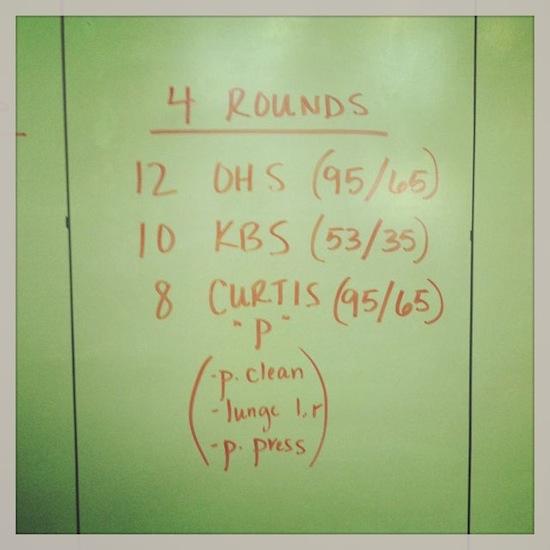 4 ROUNDS
12 OHS (95/65)
10 KBS (53/35)
8 CURTIS (95/65)
"P"
(-p. clean
-lunge l,r
-p. press)